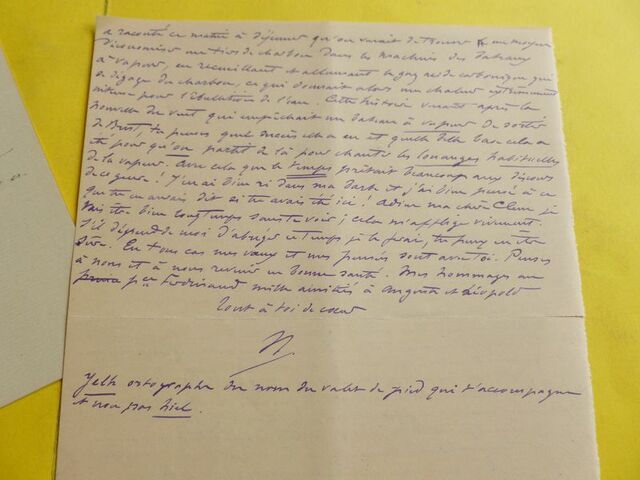 a raconté ce matin à déjeuner qu'on venait de trouver un moyen
d'économiser un tiers de charbon dans les machines des bateaux
à vapeur, en recueillant et allumant le gaz acide carbonique qui
se dégage du charbon, ce qui donnait alors une chaleur extrêmement
intense pour l'ébullition de l'eau. Cette histoire venant après la
nouvelle du vent qui empêchait un bateau à vapeur de sortir
de Brest, tu penses quel succès elle a eu et quelle belle base cela a
été pour qu'on partît de là pour chanter les louanges habituelles
de la vapeur. Avec cela que le temps prêtait beaucoup aux discours
de ce genre! J'en ai bien ri dans ma barbe et j'ai bien pensé à ce
que tu en aurais dit si tu avais été ici! Adieu ma chère Clem je
vais être bien longtemps sans te voir; cela m'afflige vivement.
S'il dépend de moi d'abréger ce temps je le ferai, tu peux en être
sûre. En tous cas mes vœux et mes pensées sont avec toi. Penses
à nous et à nous revenir en bonne santé. Mes hommages au
pce Ferdinand mille amitiés à Auguste et Léopold
Tout à toi de cœur
N.
Yelh ortographe du nom du valet de pied qui t'accompagne
et non pas hiel.